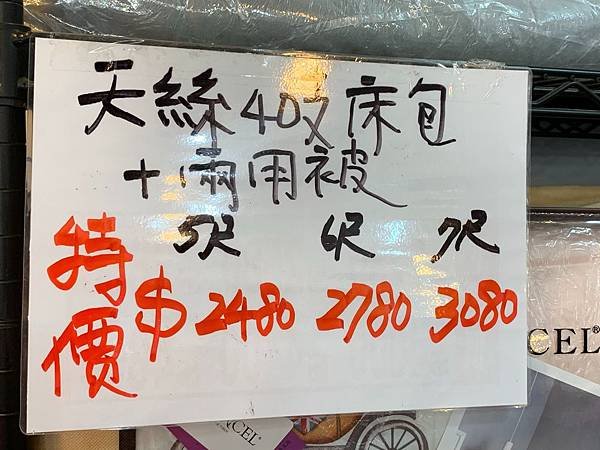 天絲40支床包
+兩用被
5尺 6尺 7尺
特價 $2480 2780 3080
CEL®
NCEL®